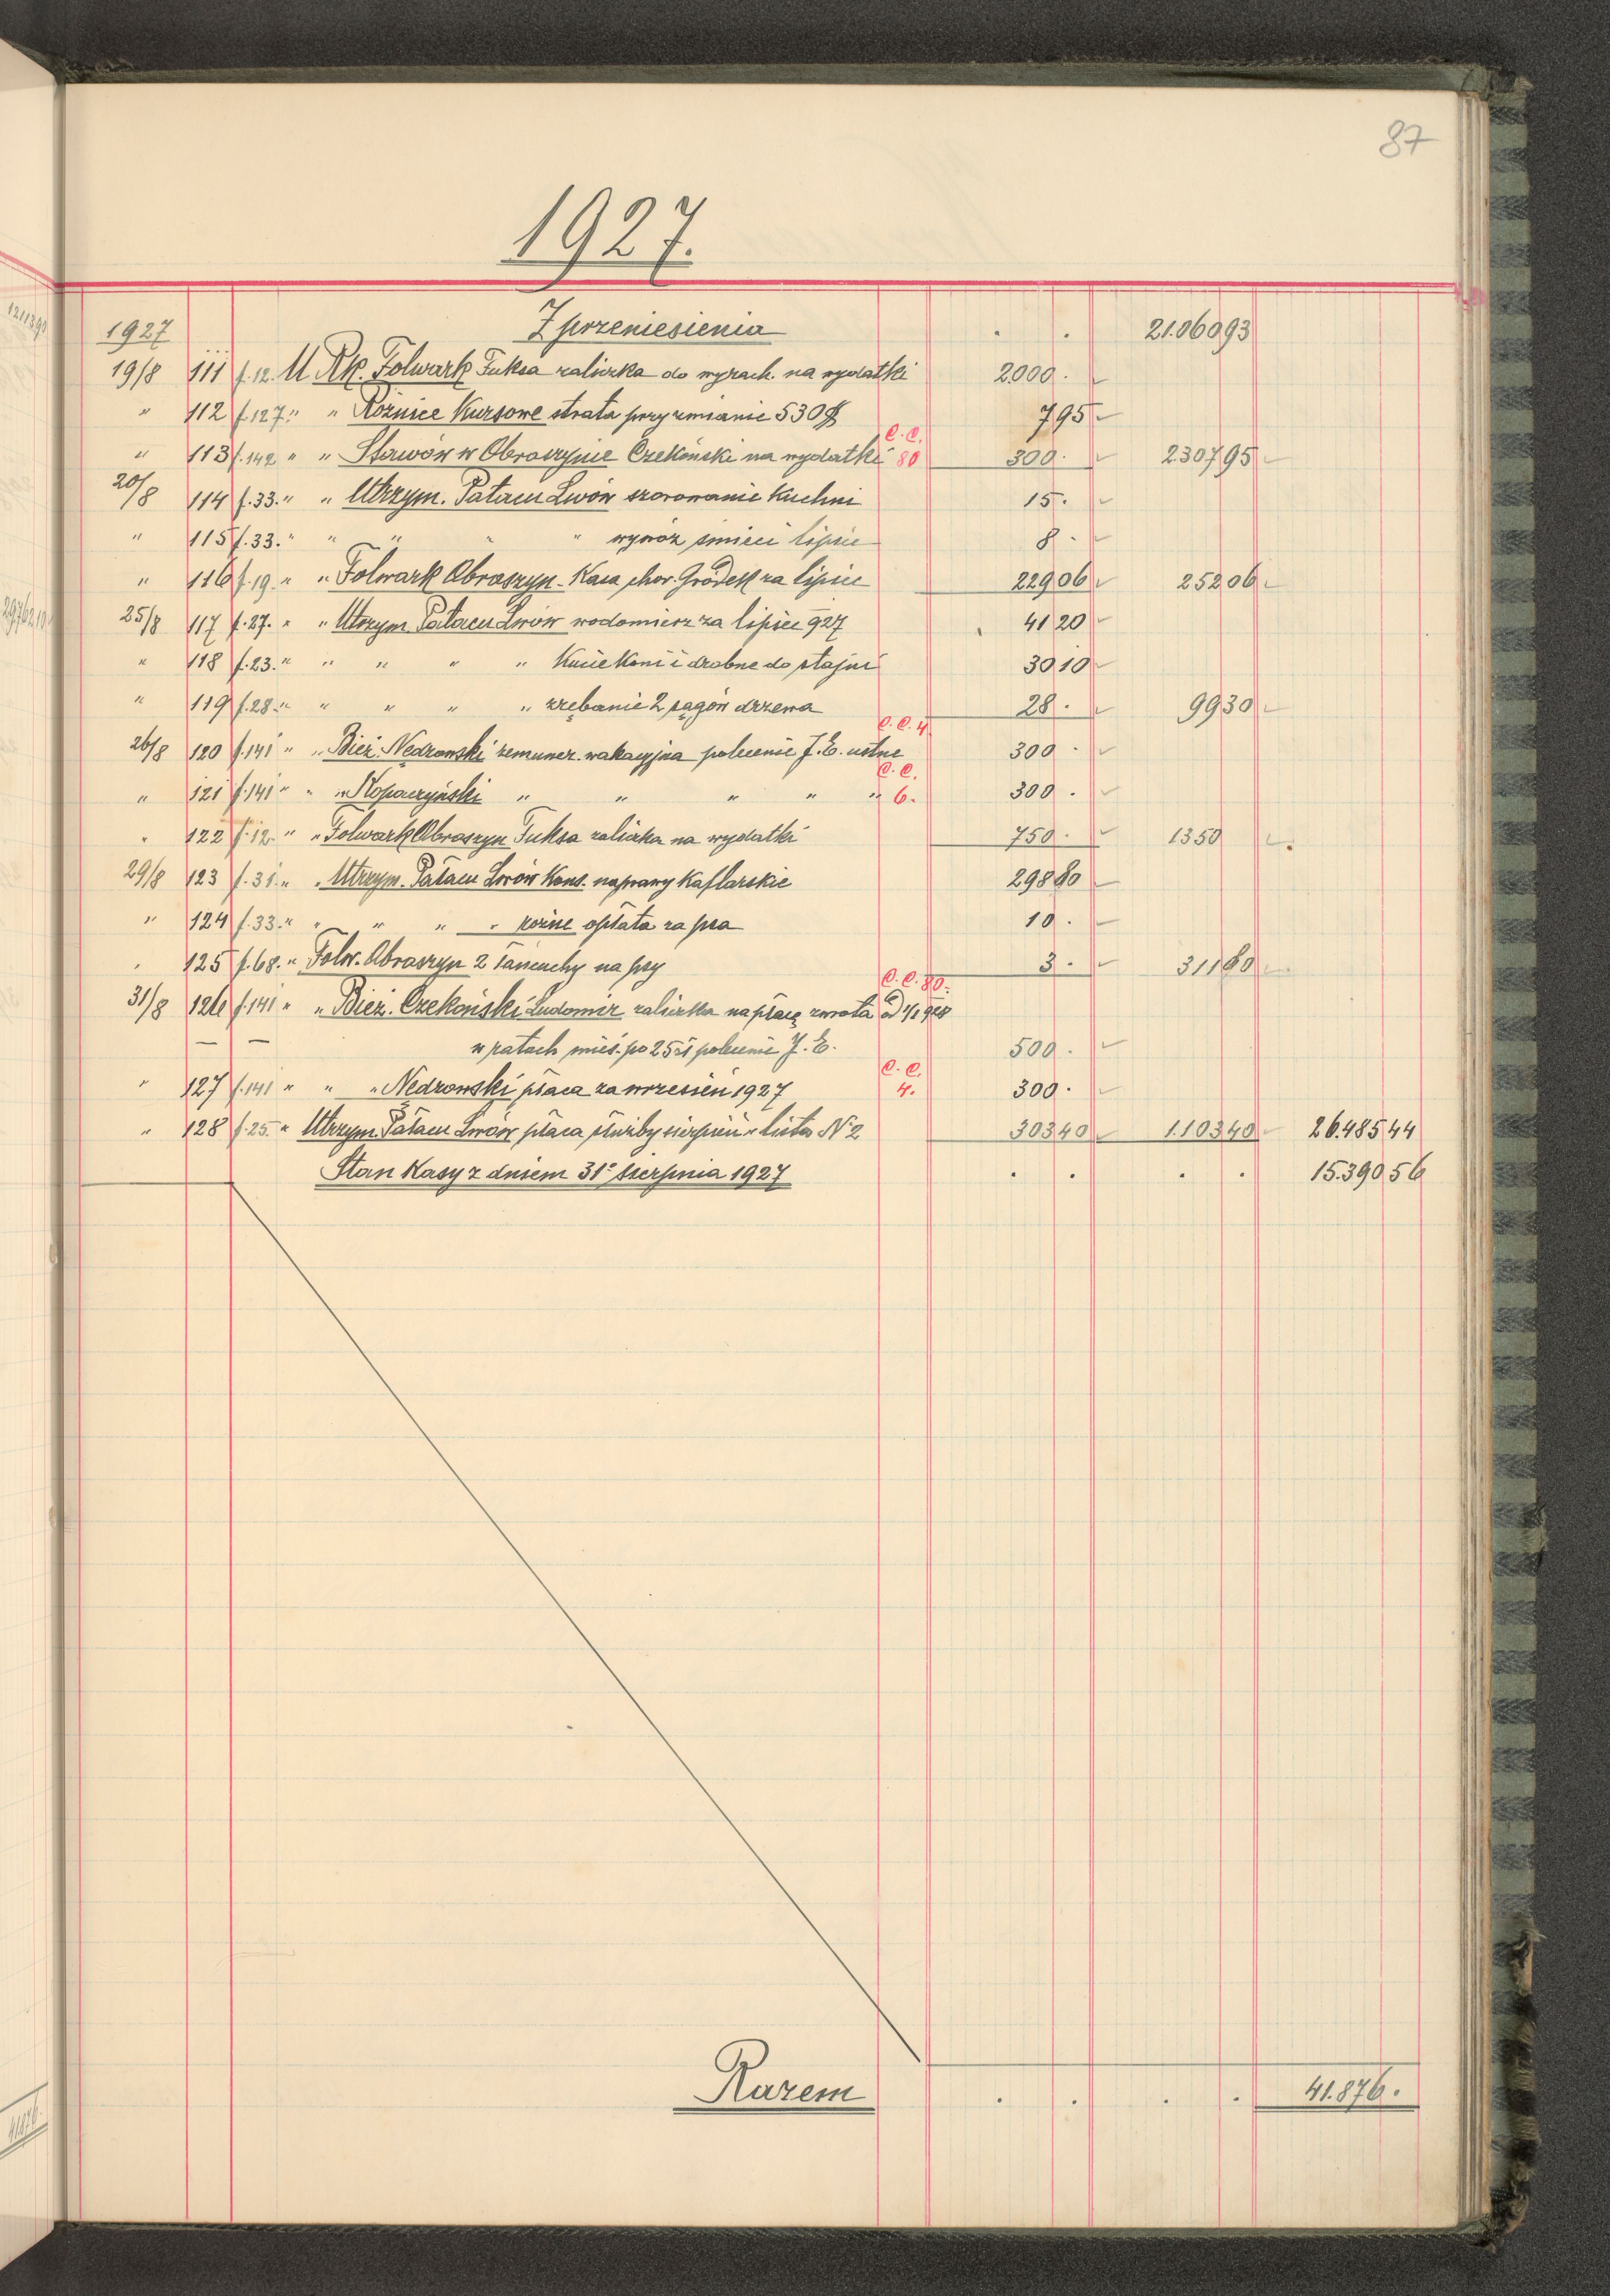 87
1927.
1927 Z przeniesienia . . 21.060 93
19/8 111 f. 12. U Rk. Folwark Fuksa zaliczka do wyrach. na wydatki 2000 .
" 112 f. 127. " " Różnice Kursowe strata przy zmianie 530 $ 7 95
" 113 f. 142 " " Stawów w Obroszynie Czekoński na wydatki C.C. 80 300 . 2307 95
20/8 114 f. 33. " " Utrzym. Pałacu Lwów szorowanie Kuchni 15 .
" 115 f. 33. " " " " " wywóz śmieci lipiec 8 .
" 116 f. 19. " " Folwark Obroszyn - Kasa chor. Gródek za lipiec 229 06 252 06
25/8 117 f. 27. " " Utrzym Pałacu Lwów wodomierz za lipiec 927 41 20
" 118 f. 23. " " " " " Kucie Koni i drobne do stajni 30 10
" 119 f. 28. " " " " " zrębanie 2 sągów drzewa 28 . 99 30
26/8 120 f. 141 " " Bież. Nedzowski remuner. wakacyjna polecenie J. E. ustne C.C. 4 300 .
" 121 f. 141 " " " Kopaczyński " " " " " C.C. 6. 300 .
" 122 f. 12. " " Folwark Obroszyn Fuksa zaliczka na wydatki 750 . 1350
29/8 123 f. 31. " " Utrzym. Pałacu Lwów Kons. naprawy Kaflarskie 298 80
" 124 f. 33. " " " " " różne opłata za psa 10 .
" 125 f. 68. " Folw. Obroszyn 2 łańcuchy na psy 3 . 311 80
31/8 126 f. 141 " " Bież. Czekoński Ludomir zaliczka na płacę zwrota od 1/1 928 C.C. 80.
— — w ratach mieś. po 25 zł polecenie J. E. 500 .
" 127 f. 141 " " " Nedzowski płaca za wrzesień 1927 C.C. 4. 300 .
" 128 f. 25. " Utrzym. Pałacu Lwów płaca służby sierpień " lista № 2 303 40 1.103 40 26.485 44
Stan Kasy z dniem 31º sierpnia 1927 . . . . 15.390 56
Razem . . . . 41.876 .